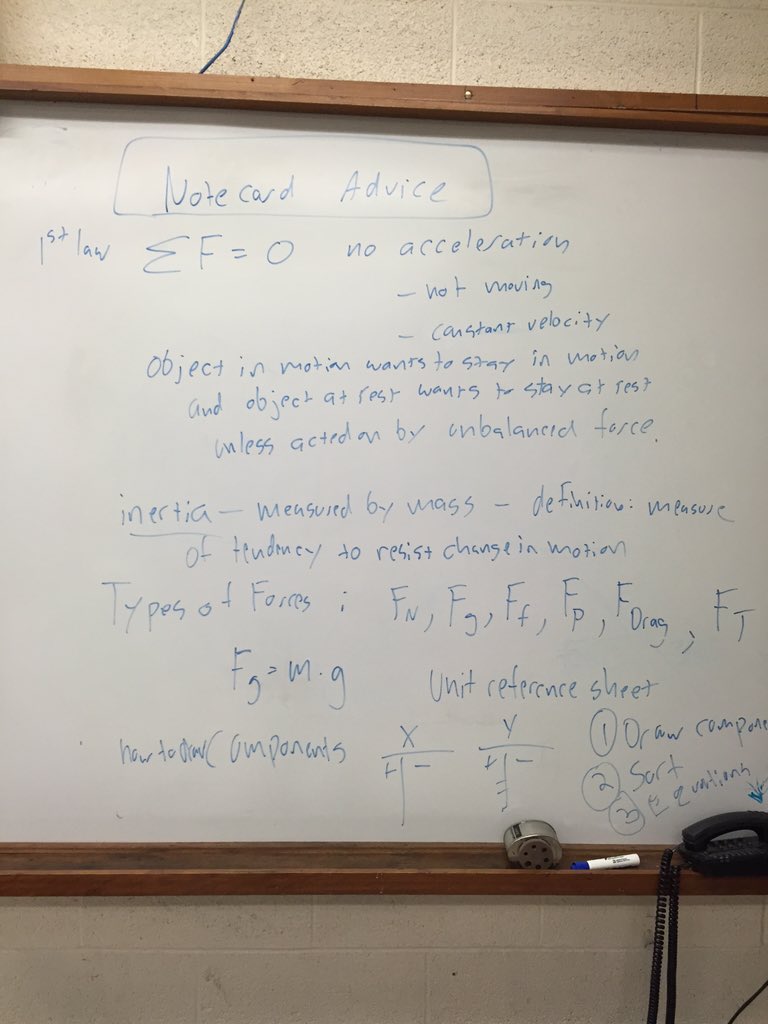 Notecard Advice
1st law ΣF = 0 no acceleration
- not moving
- constant velocity
Object in motion wants to stay in motion
and object at rest wants to stay at rest
unless acted on by unbalanced force.
inertia - measured by mass - definition: measure
of tendency to resist change in motion
Types of Forces: FN, Fg, Ff, Fp, FDrag, FT
Fg = m · g Unit reference sheet
how to draw Components
X Y
+ - + -
① Draw compone
② Sort
③ Equations